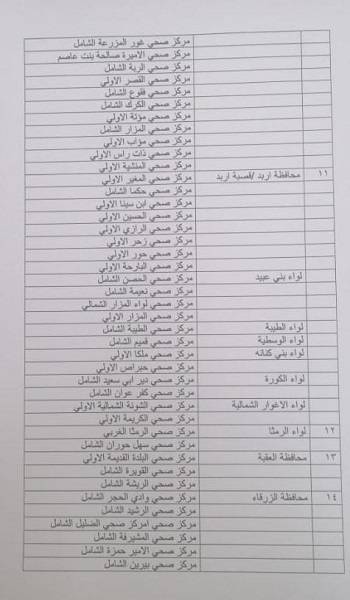 مركز صحي غور المزرعة الشامل
مركز صحي الاميرة صالحة بنت عاصم
مركز صحي الربة الشامل
مركز صحي القصر الاولي
مركز صحي فقوع الشامل
مركز صحي الكرك الشامل
مركز صحي مؤتة الاولي
مركز صحي المزار الشامل
مركز صحي مؤاب الاولي
مركز صحي ذات راس الاولي
مركز صحي المنشية الاولي
١١ محافظة اربد /قصبة اربد مركز صحي المغير الاولي
مركز صحي حكما الشامل
مركز صحي ابن سينا الاولي
مركز صحي الحسين الاولي
مركز صحي الرازي الاولي
مركز صحي زحر الاولي
مركز صحي حور الاولي
مركز صحي البارحة الاولي
لواء بني عبيد مركز صحي الحصن الشامل
مركز صحي نعيمة الشامل
مركز صحي لواء المزار الشمالي
مركز صحي المزار الاولي
لواء الطيبة مركز صحي الطيبة الشامل
لواء الوسطية مركز صحي قميم الشامل
لواء بني كنانه مركز صحي ملكا الاولي
مركز صحي حبراص الاولي
لواء الكورة مركز صحي دير ابي سعيد الشامل
مركز صحي كفر عوان الشامل
لواء الاغوار الشمالية مركز صحي الشونة الشمالية الاولي
مركز صحي الكريمة الاولي
١٢ لواء الرمثا مركز صحي الرمثا الغربي
مركز صحي سهل حوران الشامل
١٣ محافظة العقبة مركز صحي البلدة القديمة الاولي
مركز صحي القويرة الشامل
مركز صحي الريشة الشامل
١٤ محافظة الزرقاء مركز صحي وادي الحجر الشامل
مركز صحي الرشيد الشامل
مركز صحي امركز صحي الضليل الشامل
مركز صحي المشيرفة الشامل
مركز صحي الامير حمزة الشامل
مركز صحي بيرين الشامل